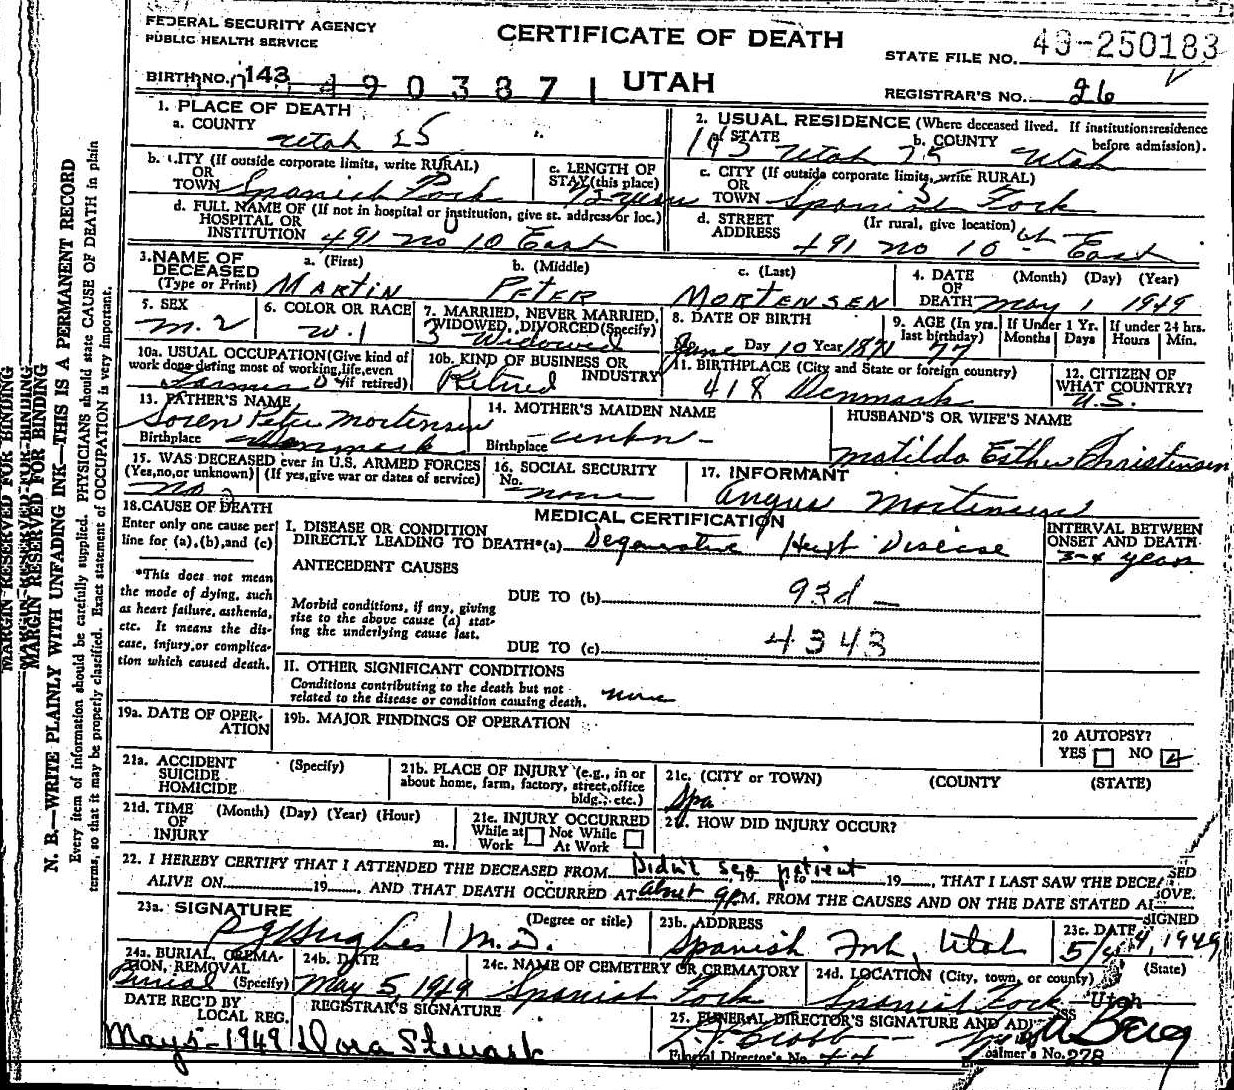 FEDERAL SECURITY AGENCY
PUBLIC HEALTH SERVICE
CERTIFICATE OF DEATH
STATE FILE NO. 49-250183
BIRTH NO. 143 490387
UTAH
REGISTRAR'S NO. 26
1. PLACE OF DEATH
a. COUNTY Utah 25
2. USUAL RESIDENCE (Where deceased lived. If institution:residence before admission).
a. STATE Utah 25 b. COUNTY Utah
b. CITY (If outside corporate limits, write RURAL)
OR TOWN Spanish Fork
c. LENGTH OF STAY (this place) 72 years
c. CITY (If outside corporate limits, write RURAL)
OR TOWN Spanish Fork
d. FULL NAME OF (If not in hospital or institution, give st. address or loc.)
HOSPITAL OR INSTITUTION 491 no 10 East
d. STREET ADDRESS (If rural, give location) 491 no 10th East
3. NAME OF DECEASED (Type or Print)
a. (First) MARTIN b. (Middle) PETER c. (Last) MORTENSEN
4. DATE OF DEATH (Month) (Day) (Year) May 1 1949
5. SEX M. 2
6. COLOR OR RACE W. 1
7. MARRIED, NEVER MARRIED, WIDOWED, DIVORCED (Specify) 3 Widowed
8. DATE OF BIRTH June Day 10 Year 1871
9. AGE (In yrs. last birthday) 77
If Under 1 Yr. Months Days
If under 24 hrs. Hours Min.
10a. USUAL OCCUPATION (Give kind of work done during most of working life, even if retired) Farmer
10b. KIND OF BUSINESS OR INDUSTRY Retired
11. BIRTHPLACE (City and State or foreign country) 418 Denmark
12. CITIZEN OF WHAT COUNTRY? U.S.
13. FATHER'S NAME
Soren Peter Mortensen
Birthplace Denmark
14. MOTHER'S MAIDEN NAME
Birthplace unkn-
HUSBAND'S OR WIFE'S NAME
Matilda Esther Christensen
15. WAS DECEASED ever in U.S. ARMED FORCES
(Yes, no, or unknown) (If yes, give war or dates of service)
No
16. SOCIAL SECURITY No. none
17. INFORMANT
Angus Mortensen
18. CAUSE OF DEATH
Enter only one cause per line for (a), (b), and (c)
*This does not mean the mode of dying, such as heart failure, asthenia, etc. It means the disease, injury, or complication which caused death.
MEDICAL CERTIFICATION
I. DISEASE OR CONDITION DIRECTLY LEADING TO DEATH*(a) Degenerative Heart Disease
INTERVAL BETWEEN ONSET AND DEATH
3-4 years
ANTECEDENT CAUSES
Morbid conditions, if any, giving rise to the above cause (a) stating the underlying cause last.
DUE TO (b) 93d -
DUE TO (c) 4343
II. OTHER SIGNIFICANT CONDITIONS
Conditions contributing to the death but not related to the disease or condition causing death. none
19a. DATE OF OPERATION
19b. MAJOR FINDINGS OF OPERATION
20 AUTOPSY?
YES NO
21a. ACCIDENT SUICIDE HOMICIDE (Specify)
21b. PLACE OF INJURY (e.g., in or about home, farm, factory, street, office bldg., etc.)
21c. (CITY or TOWN) (COUNTY (STATE)
Spa
21d. TIME OF INJURY (Month) (Day) (Year) (Hour) m.
21e. INJURY OCCURRED
While at Work Not While At Work
21f. HOW DID INJURY OCCUR?
22. I HEREBY CERTIFY THAT I ATTENDED THE DECEASED FROM Didn't see patient 19, THAT I LAST SAW THE DECEASED
ALIVE ON 19, AND THAT DEATH OCCURRED AT about 9P.M. FROM THE CAUSES AND ON THE DATE STATED ABOVE.
23a. SIGNATURE (Degree or title) Hughes M.D.
23b. ADDRESS Spanish Fork, Utah
23c. DATE SIGNED 5/4, 1949
24a. BURIAL, CREMATION, REMOVAL (Specify) Burial
24b. DATE May 5, 1949
24c. NAME OF CEMETERY OR CREMATORY Spanish Fork
24d. LOCATION (City, town, or county) (State) Spanish Fork Utah
DATE REC'D BY LOCAL REG. May 5-1949
REGISTRAR'S SIGNATURE Dora Stewart
25. FUNERAL DIRECTOR'S SIGNATURE AND ADDRESS
Funeral Director's No. 44
Embalmer's No. 278
MARGIN RESERVED FOR BINDING
MARGIN RESERVED FOR BINDING
MARGIN RESERVED FOR BINDING
N. B.—WRITE PLAINLY WITH UNFADING INK—THIS IS A PERMANENT RECORD
Every item of information should be carefully supplied. PHYSICIANS should state CAUSE OF DEATH in plain
terms, so that it may be properly classified. Exact statement of OCCUPATION is very important.